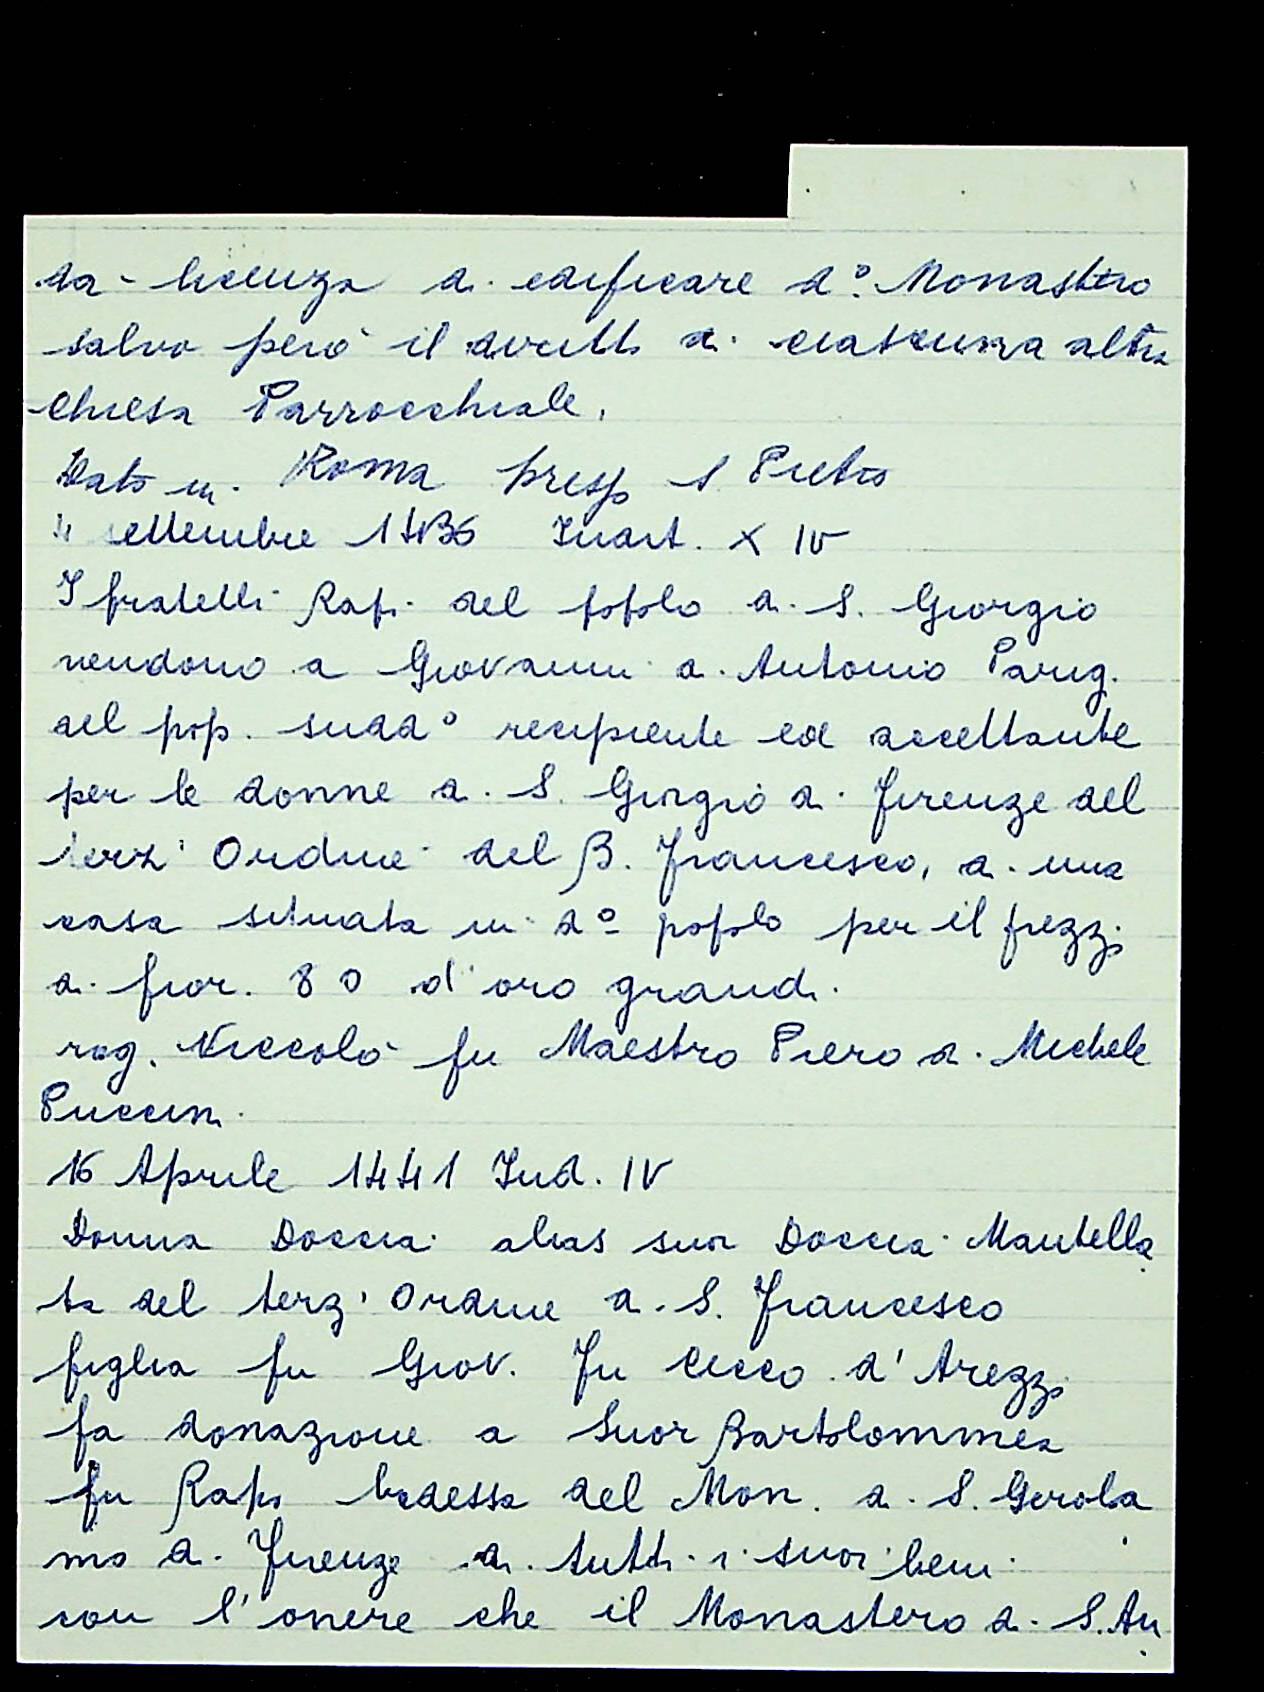 da licenza di edificare d.º Monastero
salvo però il diritto di ciascuna altra
Chiesa Parrocchiale.
Dato in Roma presso S Pietro
settembre 1436 X IV
I fratelli Rapi del popolo di S. Giorgio
vendono a Giovanni di Antonio Parig.
del pop. sudd° recipiente ed accettante
per le donne di S. Giorgio di Firenze del
terz' Ordine del B. Francesco, di una
casa situata in dº popolo per il prezzo
di fior. 80 d'oro grandi.
rog. Niccolò fu Maestro Piero di Michele
Puccini.
16 Aprile 1441 Ind. IV
Donna Doccia alias suor Doccia Mantella
ta del terz' Ordine di S. Francesco
figlia fu Giov. fu Cecco d'Arezzo
fa donazione a Suor Bartolommea
fu Rapo badessa del Mon. di S. Gerola
mo di Firenze di tutti i suoi beni
con l'onere che il Monastero di S. An